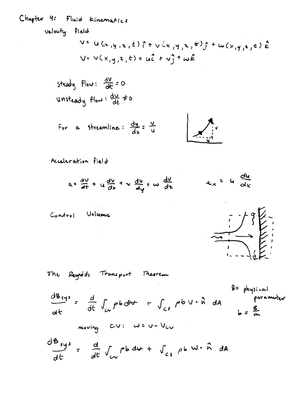 Chapter 4: Fluid Kinematics
Velocity Field
V = u(x,y,z,t)î + v(x,y,z,t)ĵ + w(x,y,z,t)k̂
V = V(x,y,z,t) = uî + vĵ + wk̂
steady flow: dV/dt = 0
unsteady flow: dV/dt ≠ 0
For a streamline: dy/dx = v/u
Acceleration field
a = dV/dt + u dV/dx + v dV/dy + w dV/dz   ax = u du/dx
Control Volume
The Reynolds Transport Theorem
B = physical parameter
b = B/m
dBsys/dt = d/dt ∫cv ρb dV + ∫cs ρb V · n̂ dA
moving CV: W = V - Vcv
dBsys/dt = d/dt ∫cv ρb dV + ∫cs ρb W · n̂ dA